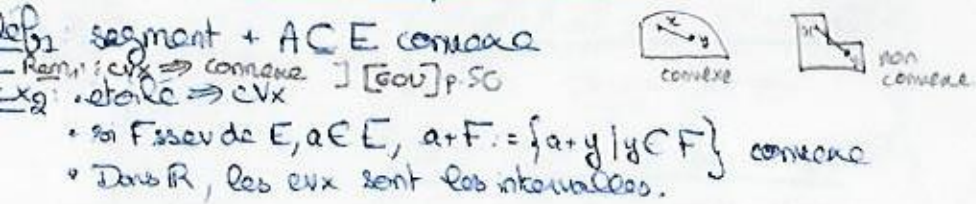 Def1 segment + A⊂E convexe
Rem : cvx ⇒ connexe ] [GOU] p.50
Ex2 : • étoilé ⇒ cvx
• si F ssev de E, a∈E, a+F := {a+y | y∈F} convexe
• Dans R, les cvx sont les intervalles.
x y
convexe
x y
non
convexe